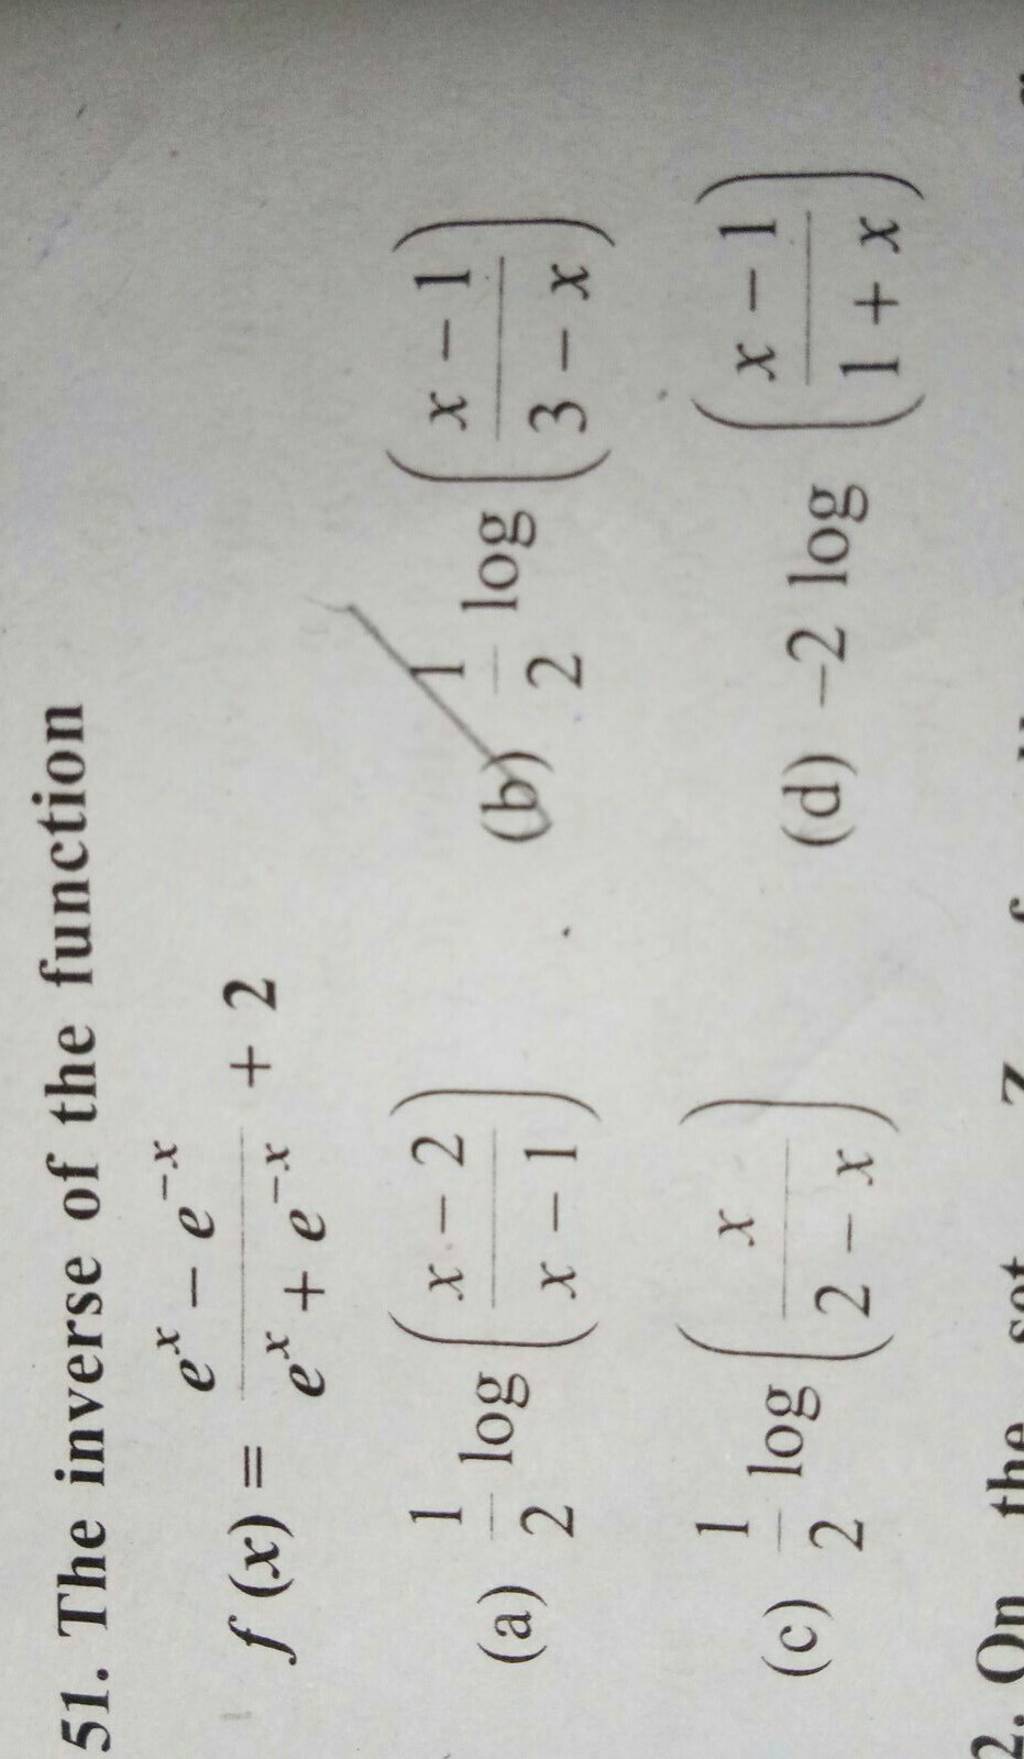 51. The inverse of the function
f (x) = \frac{e^x − e^{−x}}{e^x + e^{−x}} + 2
(a) \frac{1}{2} log \left(\frac{x − 2}{x − 1}\right) (b) \frac{1}{2} log \left(\frac{x − 1}{3 − x}\right)
(c) \frac{1}{2} log \left(\frac{x}{2 − x}\right) (d) −2 log \left(\frac{x − 1}{1 + x}\right)
2. On the set Z